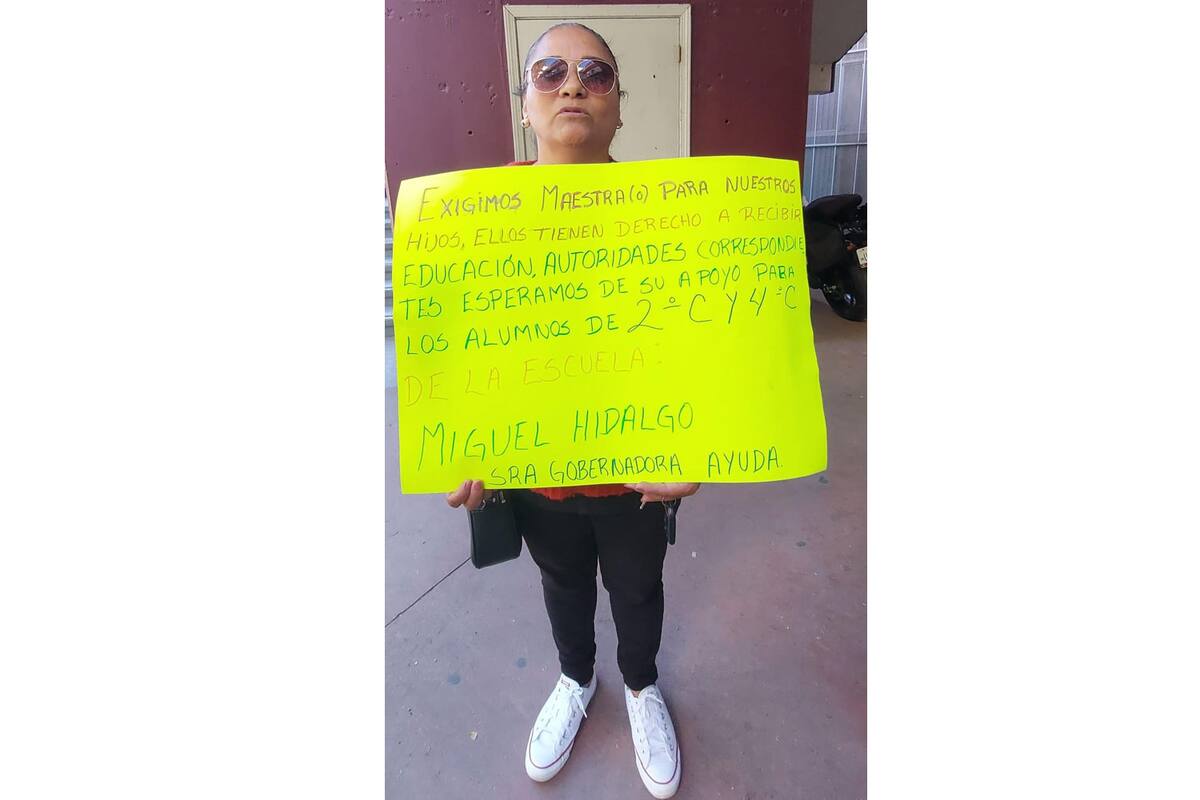 EXIGIMOS MAESTRA(O) PARA NUESTROS
HIJOS, ELLOS TIENEN DERECHO A RECIBIR
EDUCACIÓN, AUTORIDADES CORRESPONDIE
TES ESPERAMOS DE SU APOYO PARA
LOS ALUMNOS DE 2º C Y 4º C
DE LA ESCUELA:
MIGUEL HIDALGO
SRA GOBERNADORA AYUDA.